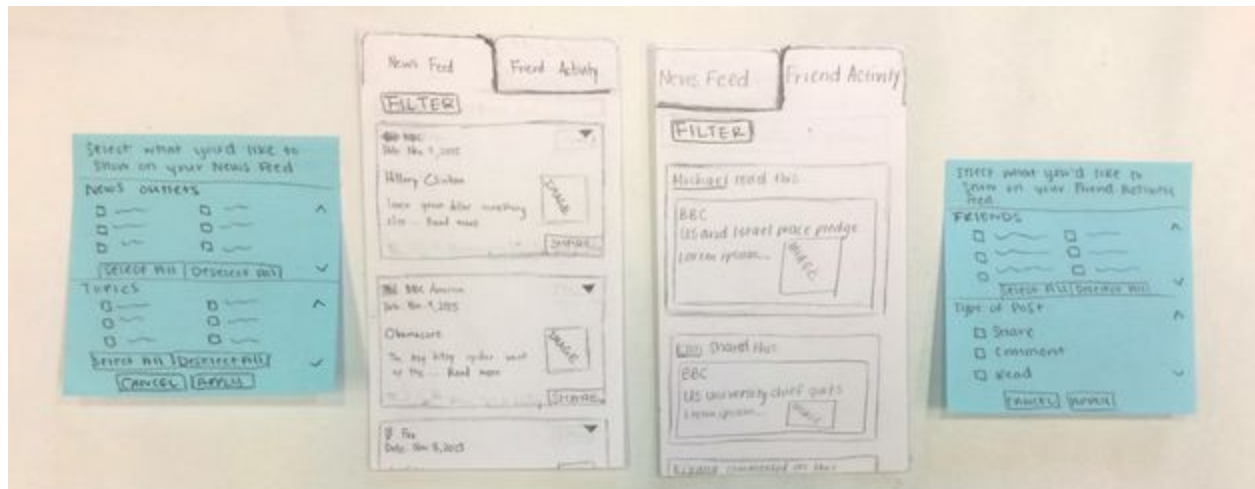 Select what you'd like to
Show on your News Feed
News outlets
Select All Deselect All
Topics
Select All Deselect All
CANCEL APPLY
News Feed Friend Activity
FILTER
Date: Nov 9, 2015
Hillary Clinton
IMAGE
else ... Read more
SHARE
BBC America
Date: Nov 9, 2015
Obamacare
IMAGE
The itsy bitsy spider went
up the ... Read more
SHARE
Fox
Date: Nov 8, 2015
News Feed Friend Activity
FILTER
Michael read this
BBC
US and Israel peace pledge
Lorem ipsum...
IMAGE
shared this
BBC
US university chief quits
Lorem ipsum...
IMAGE
commented on this
Select what you'd like to
Show on your Friend Activity
Feed
FRIENDS
Select All Deselect All
Type of Post
Share
Comment
Read
CANCEL APPLY